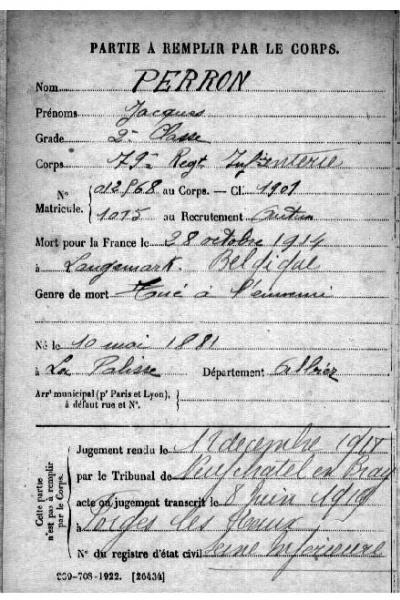 PARTIE À REMPLIR PAR LE CORPS.
Nom PERRON
Prénoms Jacques
Grade 2e Classe
Corps 79e Regt Infanterie
No Matricule. 012968 au Corps. — Cl. 1901
1015 au Recrutement Autun
Mort pour la France le 28 octobre 1914
à Langemark. Belgique
Genre de mort Tué à l'ennemi
Né le 10 mai 1881
à La Palisse Département Allier
Arrt municipal (pr Paris et Lyon), à défaut rue et No.
Cette partie n'est pas à remplir par le Corps.
Jugement rendu le decembre 1917
par le Tribunal de Neufchatel en Bray
acte ou jugement transcrit le 8 juin 1918
à Forges les Eaux
No du registre d'état civil Seine Inférieure
-708-1922. [26434]